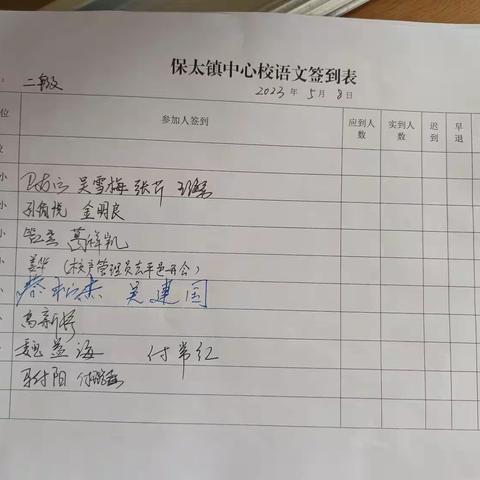 保太镇中心校语文签到表
: 二年级 2023 年 5 月 8 日
位 参加人签到 应到人数 实到人数 迟到 早退
校
小 吴雪梅 张芹
小 金明良
小 葛祥凯
小 姜华 (校产管理员去平邑开会)
小 吴建国
高新婷
魏益海 付常红